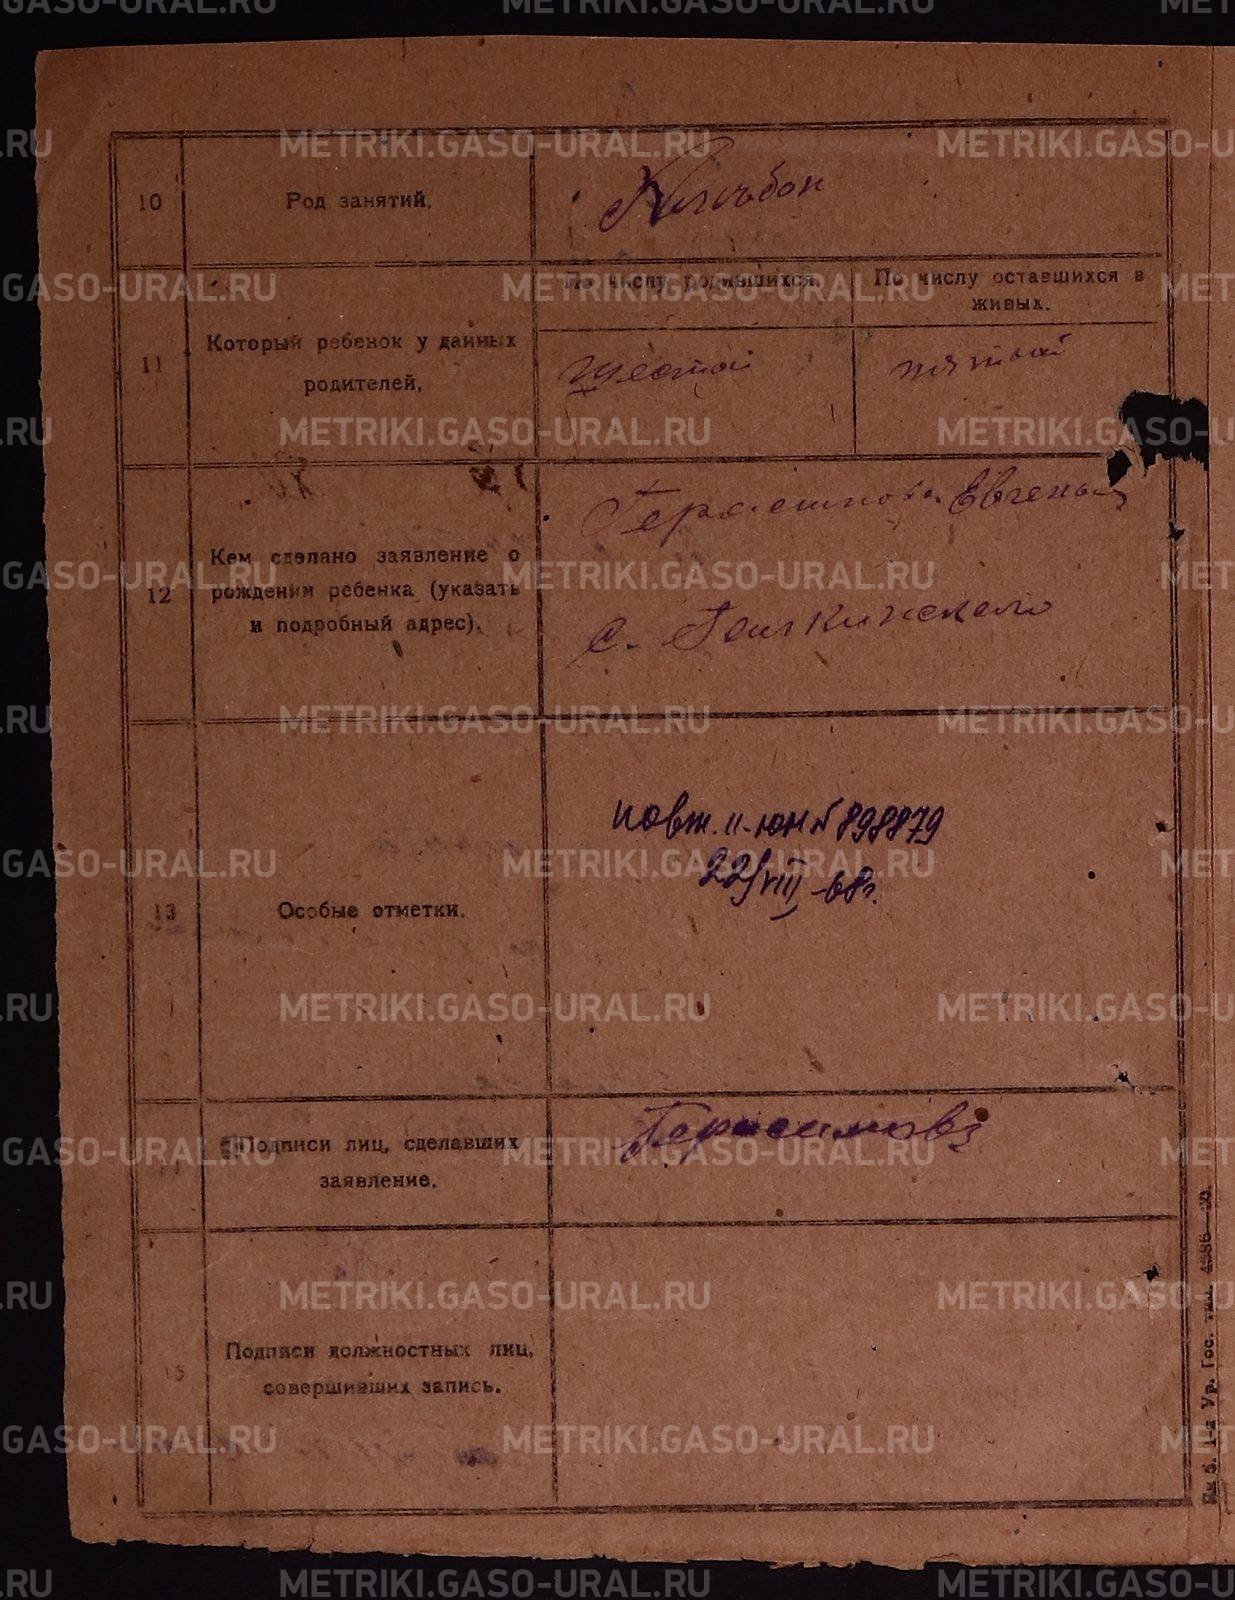 10
Род занятий.
Хлебоп
11
Который ребенок у данных
родителей,
По числу родившихся.
По числу оставшихся в
живых.
шестой
пятый
12
Кем сделано заявление о
рождении ребенка (указать
и подробный адрес).
Герасимова Евгенья
с.
13
Особые отметки.
повт. II-юн № 898879
22/VIII-68г.
Подписи лиц, сделавших
заявление.
Герасимова
15
Подписи должностных лиц,
совершивших запись.
1-я Ур. Гос. тип. 4886—20.
METRIKI.GASO-URAL.RU